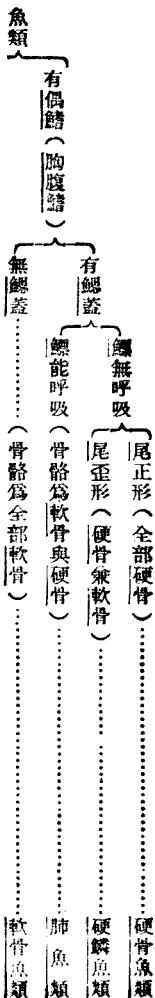 魚類
有偶鰭（胸腹鰭）
有鰓蓋
鰾無呼吸
尾正形（全部硬骨）……硬骨魚類
尾歪形（硬骨兼軟骨）……硬鱗魚類
鰾能呼吸（骨骼爲軟骨與硬骨）……肺魚類
無鰓蓋……（骨骼爲全部軟骨）……軟骨魚類